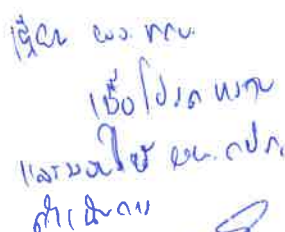 เรียน ผว. กคบ.
เพื่อโปรดทราบ
และมอบให้
ดำเนินการ